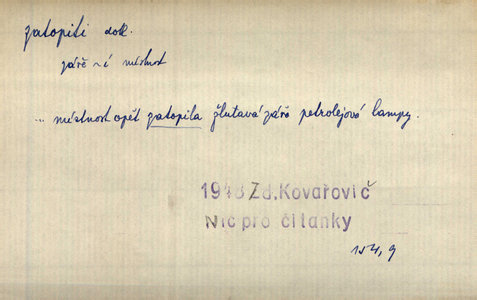 zatopiti dok.
záře ~í místnost
... místnost opět zatopila žlutavá záře petrolejové lampy.
1948 Zd. Kovařovič
Nic pro čítanky
154, 9